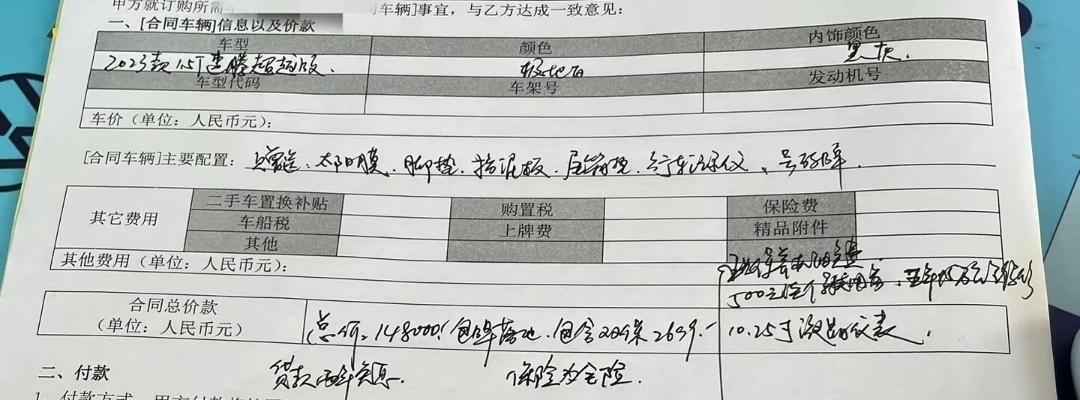 甲方就订购所需 同车辆]事宜，与乙方达成一致意见：
一、[合同车辆]信息以及价款
车型 颜色 内饰颜色
2023款1.5T速腾超越版 极地白 黑灰
车型代码 车架号 发动机号
车价（单位：人民币元）：
[合同车辆]主要配置： 太阳膜、脚垫、挡泥板、后备箱垫、行车记录仪、号码牌
其它费用 二手车置换补贴 购置税 保险费
车船税 上牌费 精品附件
其他
其他费用（单位：人民币元）：
500元
合同总价款
（单位：人民币元） 总价：148000！包牌落地、包含 10.25寸液晶仪表、
二、付款 贷款两年 息、 保险为全险、